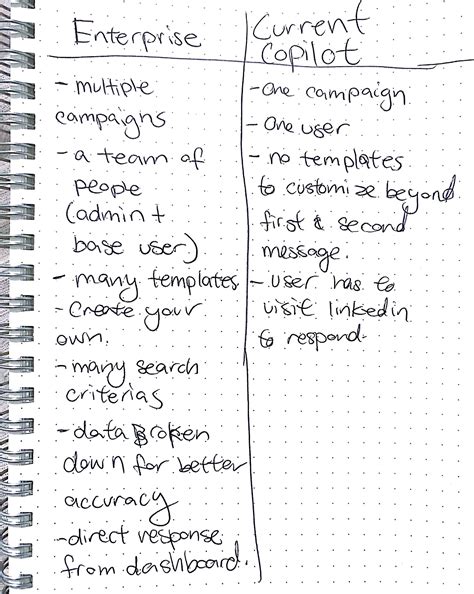 Enterprise
- multiple
campaigns
- a team of
people
(admin +
base user)
- many templates
- Create your
own.
- many search
criterias
- data Broken
down for better
accuracy
- direct response
from dashboard.
Current
Copilot
- One campaign
- One user
- no templates
to customize beyond
first & second
message.
- user has to
visit linkedin
to respond.